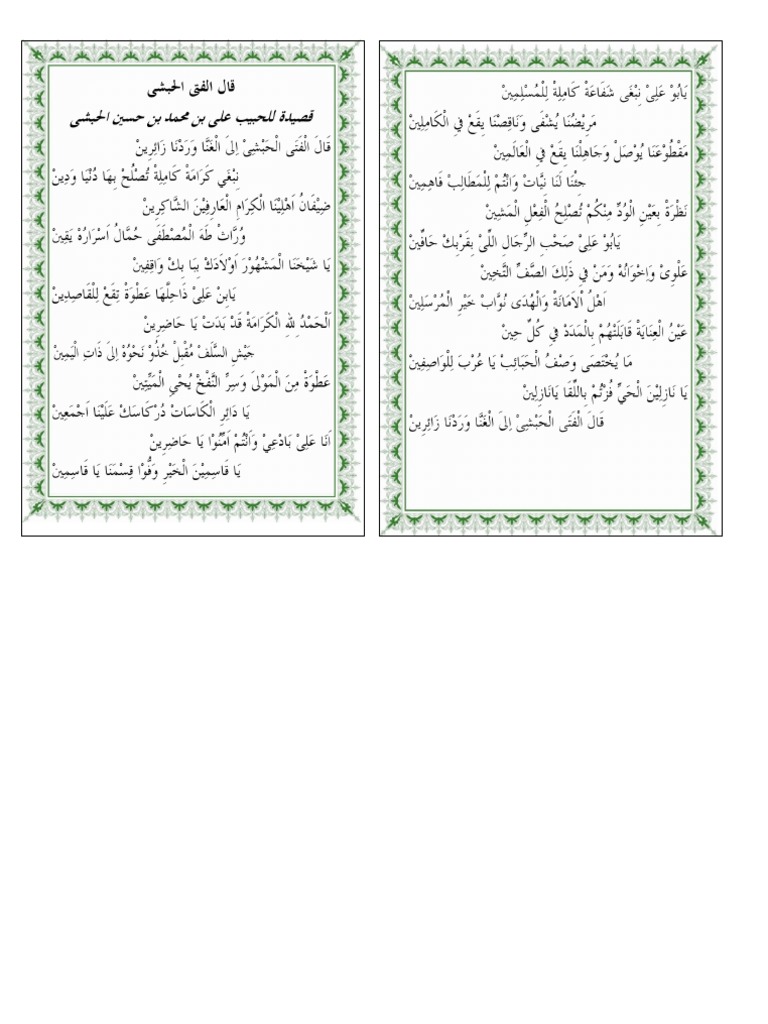 قال الفتى الحبشى
قصيدة للحبيب على بن محمد بن حسين الحبشى
قَالَ الْفَتَى الْحَبْشِىْ اِلىَ الْغَنَّا وَرَدْنَا زَائِرِينْ
نِبْغَي كَرَامَةْ كَامِلِةْ تُصْلُحْ بِهَا دُنْيَا وَدِينْ
ضِيْفَانُ اَهْلِيْنَا الْكِرَامِ الْعَارِفِيْنَ الشَّاكِرِينْ
وُرَّاثْ طَهَ الْمُصْطَفَى حُمَّالُ اَسْرَارُهْ يَقِينْ
يَا شَيْخَنَا الْمَشْهُوْرَ اَوْلَادَكْ بِبَا بِكْ وَاقِفِينْ
يَابِنْ عَلِىْ ذَاحِلَّهَا عَطْوَةْ تِقَعْ لِلْقَاصِدِينْ
اَلْحَمْدُ لِلهِ الْكَرَامَةْ قَدْ بَدَتْ يَا حَاضِرِينْ
جَيْشِ السَّلَفْ مُقْبِلْ خُذُوْ نَحْوُهْ اِلىَ ذَاتِ الْيَمِينْ
عَطْوَةْ مِنَ الْمَوْلىَ وَسِرِّ النَّفْخْ يُحْيِ الْمَيِّتِينْ
يَا دَائِرِ الْكَاسَاتْ دُرْكَاسَكْ عَلَيْنَا اَجْمَعِينْ
اَنَا عَلِىْ بَادْعِيْ وَاَنْتُمْ اَمِّنُوْا يَا حَاضِرِينْ
يَا قَاسِمِيْنَ الْخَيْرِ وَفُّوْا قِسْمَنَا يَا قَاسِمِينْ
يَابُوْ عَلِىْ نِبْغَى شَفَاعَةْ كَامِلِةْ لِلْمُسْلِمِينْ
مَرِيْضُنَا يُشْفَى وَنَاقِصْنَا يِقَعْ فِي الْكَامِلِينْ
مَقْطُوْعَنَا يُوْصَلْ وَجَاهِلْنَا يِقَعْ فِي الْعَالَمِينْ
جِئْنَا لَنَا نِيَّاتْ وَاَنْتُمْ لِلْمَطَالِبْ فَاهِمِينْ
نَظْرَةْ بِعَيْنِ الْوُدِّ مِنْكُمْ تُصْلِحُ الْفِعْلِ الْمَشِينْ
يَابُوْ عَلِىْ صَحْبِ الرِّجَالِ اللِّىْ بِقَرْبِكْ حَافِّينْ
عَلْوِىْ وَاِخْوَانُهْ وَمَنْ فِي ذَلِكَ الصَّفِّ الثَّخِينْ
اَهْلُ اْلاَمَانَةْ وَالْهُدَى نُوَّابْ خَيْرِ الْمُرْسَلِينْ
عَيْنُ الْعِنَايَةْ قَابَلَتْهُمْ بِالْمَدَدْ فِي كُلِّ حِينْ
مَا يُخْتَصَى وَصْفُ الْحَبَائِبْ يَا عُرْبَ لِلْوَاصِفِينْ
يَا نَازِلِيْنَ الْحَيِّ فُزْتُمْ بِاللِّقَا يَانَازِلِينْ
قَالَ الْفَتَى الْحَبْشِىْ اِلىَ الْغَنَّا وَرَدْنَا زَائِرِينْ